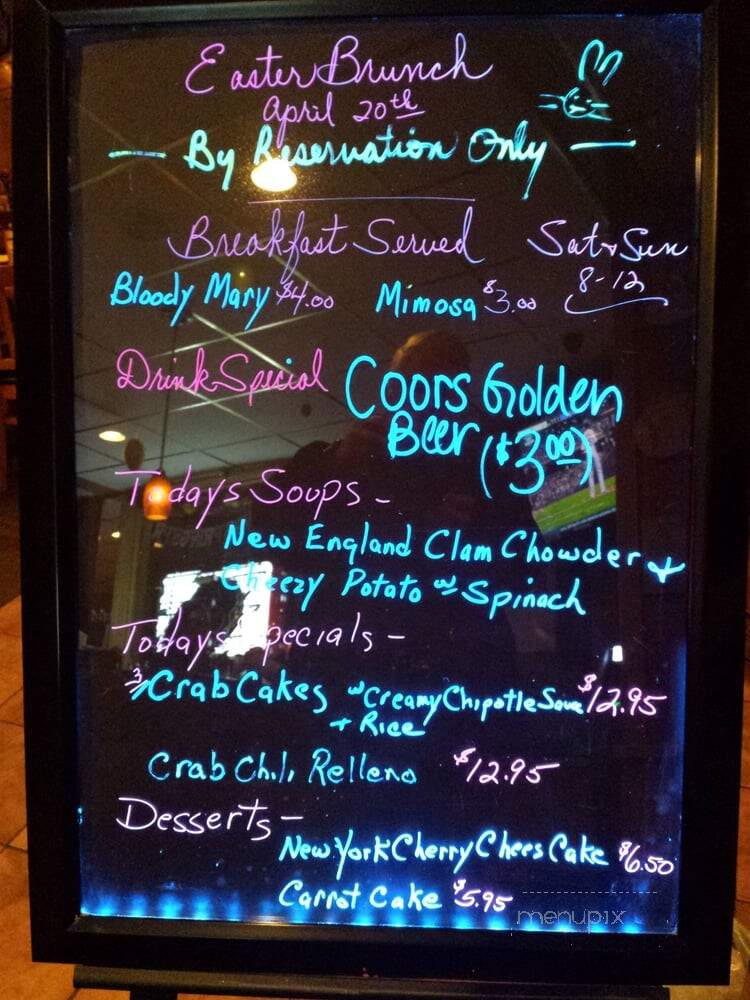 Easter Brunch
April 20th
— By Reservation Only —
Breakfast Served Sat + Sun
8-12
Bloody Mary $4.00 Mimosa $3.00
Drink Special Coors Golden
Beer ($3.00)
Todays Soups -
New England Clam Chowder +
Cheezy Potato w/ Spinach
Todays Specials -
3/Crab Cakes w/ Creamy Chipotle $12.95
+ Rice
Crab Chili Relleno $12.95
Desserts -
New York Cherry Chees Cake $6.50
Carrot Cake $5.95
menupix